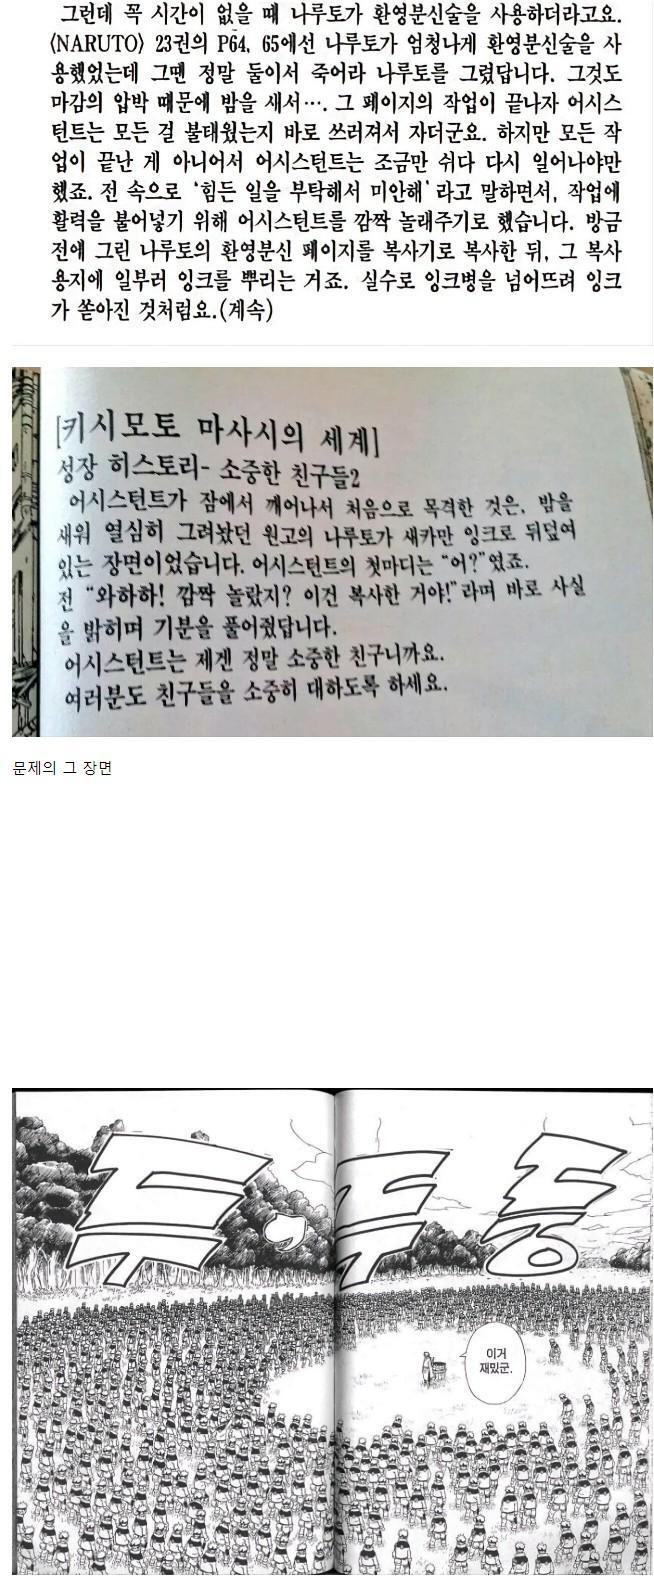 그런데 꼭 시간이 없을 때 나루토가 환영분신술을 사용하더라고요.
〈NARUTO〉 23권의 P64, 65에선 나루토가 엄청나게 환영분신술을 사
용했었는데 그땐 정말 둘이서 죽어라 나루토를 그렸답니다. 그것도
마감의 압박 때문에 밤을 새서…. 그 페이지의 작업이 끝나자 어시스
턴트는 모든 걸 불태웠는지 바로 쓰러져서 자더군요. 하지만 모든 작
업이 끝난 게 아니어서 어시스턴트는 조금만 쉬다 다시 일어나야만
했죠. 전 속으로 '힘든 일을 부탁해서 미안해'라고 말하면서, 작업에
활력을 불어넣기 위해 어시스턴트를 깜짝 놀래주기로 했습니다. 방금
전에 그린 나루토의 환영분신 페이지를 복사기로 복사한 뒤, 그 복사
용지에 일부러 잉크를 뿌리는 거죠. 실수로 잉크병을 넘어뜨려 잉크
가 쏟아진 것처럼요.(계속)
[키시모토 마사시의 세계]
성장 히스토리- 소중한 친구들2
어시스턴트가 잠에서 깨어나서 처음으로 목격한 것은, 밤을
새워 열심히 그려놨던 원고의 나루토가 새카만 잉크로 뒤덮여
있는 장면이었습니다. 어시스턴트의 첫마디는 “어?”였죠.
전 “와하하! 깜짝 놀랐지? 이건 복사한 거야!”라며 바로 사실
을 밝히며 기분을 풀어줬답니다.
어시스턴트는 제겐 정말 소중한 친구니까요.
여러분도 친구들을 소중히 대하도록 하세요.
문제의 그 장면
두두둥
이거
재밌군.